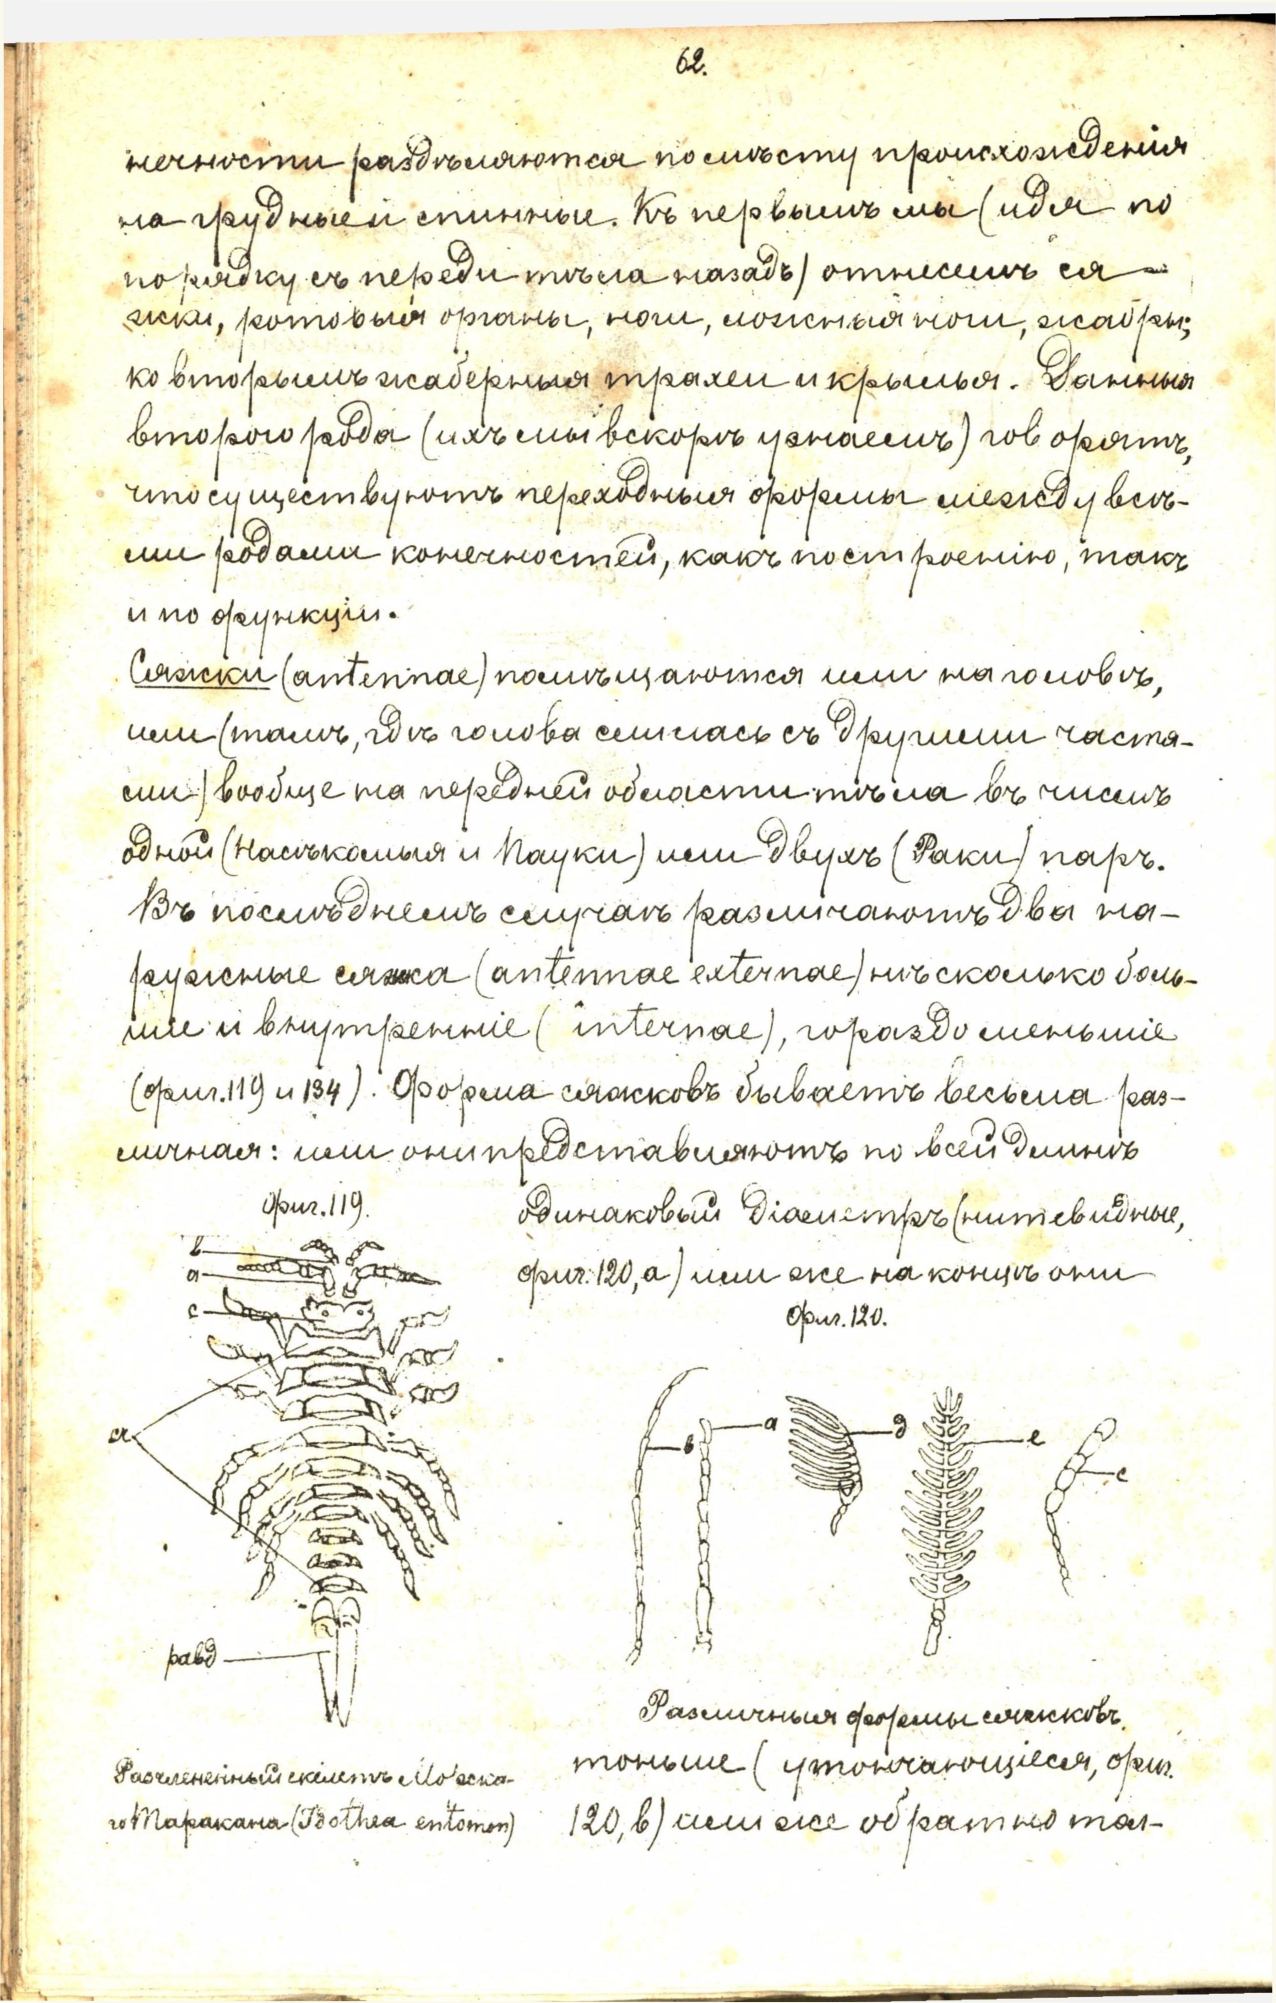 62.
нечности раздѣляются по мѣсту происхожденія
на грудные и спинные. Къ первымъ мы (идя по
порядку съ переди тѣла назадъ) отнесемъ ся-
жки, ротовыя органы, ноги, ложныя ноги, жабры;
ко вторымъ жаберныя трахеи и крылья. Данныя
второго рода (ихъ мы вскорѣ узнаемъ) говорятъ,
что существуютъ переходныя формы между всѣ-
ми родами конечностей, какъ по строенію, такъ
и по функціи.
Сяжки (antennae) помѣщаются или на головѣ,
или (тамъ, гдѣ голова слилась съ другими частя-
ми) вообще на передней области тѣла въ числѣ
одной (Насѣкомыя и Пауки) или двухъ (Раки) паръ.
Въ послѣднемъ случаѣ различаютъ два на-
ружные сяжка (antennae externae) нѣсколько боль-
шіе и внутренніе (internae), гораздо меньшіе
(фиг. 119 и 134). Форма сяжковъ бываетъ весьма раз-
личная: или они представляютъ по всей длинѣ
фиг. 119.
одинаковый діаметръ (нитевидные,
фиг. 120, а) или же на концѣ они
фиг. 120.
b
a
c
a
равд
в
а
д
е
с
Различныя формы сяжковъ.
Расчлененный скелетъ Морска-
го Таракана (Idothea entomon)
тоньше (утончающіеся, фиг.
120, в) или же обратно тол-